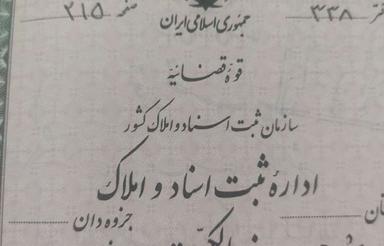 ۳۳۸ صفحه ۲۱۵
جمهوری اسلامی ایران
قوهٔ قضائیه
سازمان ثبت اسناد و املاک کشور
ادارهٔ ثبت اسناد و املاک
جزوه‌دان